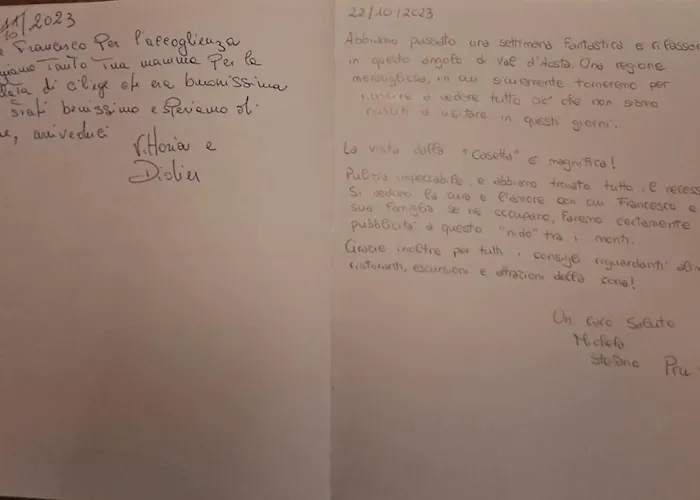 11/2023
10
Francesco per l'accoglienza
Tanto Tua mamma per la
di ciliege che era buonissima
Stati benissimo e speriamo di
arrivederci
Vittoria e
Didier
22/10/2023
Abbiamo passato una settimana fantastica e rilassa
in questo angolo di Val d'Aosta. Una regione
meravigliosa, in cui sicuramente torneremo per
riuscire a vedere tutto ciò che non siamo
riusciti a visitare in questi giorni.
La vista dalla "Casetta" è magnifica!
Pulizia impeccabile, e abbiamo trovato tutto il necess
Si vedono la cura e l'amore con cui Francesco e
sua famiglia se ne occupano. Faremo certamente
pubblicità a questo "nido" tra i monti.
Grazie inoltre per tutti i consigli riguardanti
ristoranti, escursioni e attrazioni della zona!
Un caro saluto
Michela
Stefano Pru